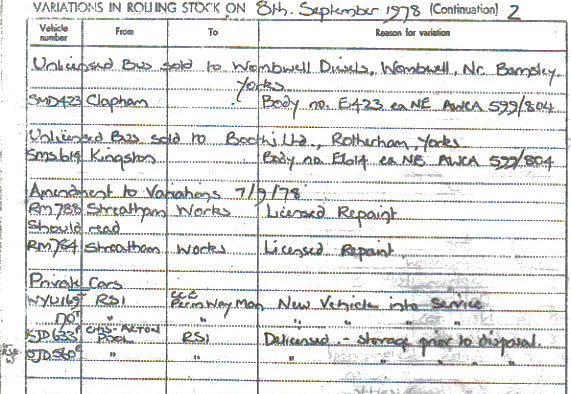 VARIATIONS IN ROLLING STOCK ON 8th. September 1978 (Continuation) 2
Vehicle number From To Reason for variation
Unlicensed Bus sold to Wombwell Diesels, Wombwell, Nr. Barnsley.
Yorks
SMD423 Clapham Body no. E423 ea NE AWCA 599/804
Unlicensed Bus sold to Booths Ltd., Rotherham, Yorks
SMS614 Kingston Body no. E1614 ea NE AWCA 599/804
Amendment to Variations 7/9/78
RM788 Streatham Works Licensed Repaint
Should read
RM784 Streatham Works Licensed Repaint
Private Cars
WYU169T RS1 Perm Way Man New Vehicle into Service
DOT " " " " " "
SJD633 CHS-ACTON POOL RS1 Delicensed - storage prior to disposal.
OJD560 " " " " " " "